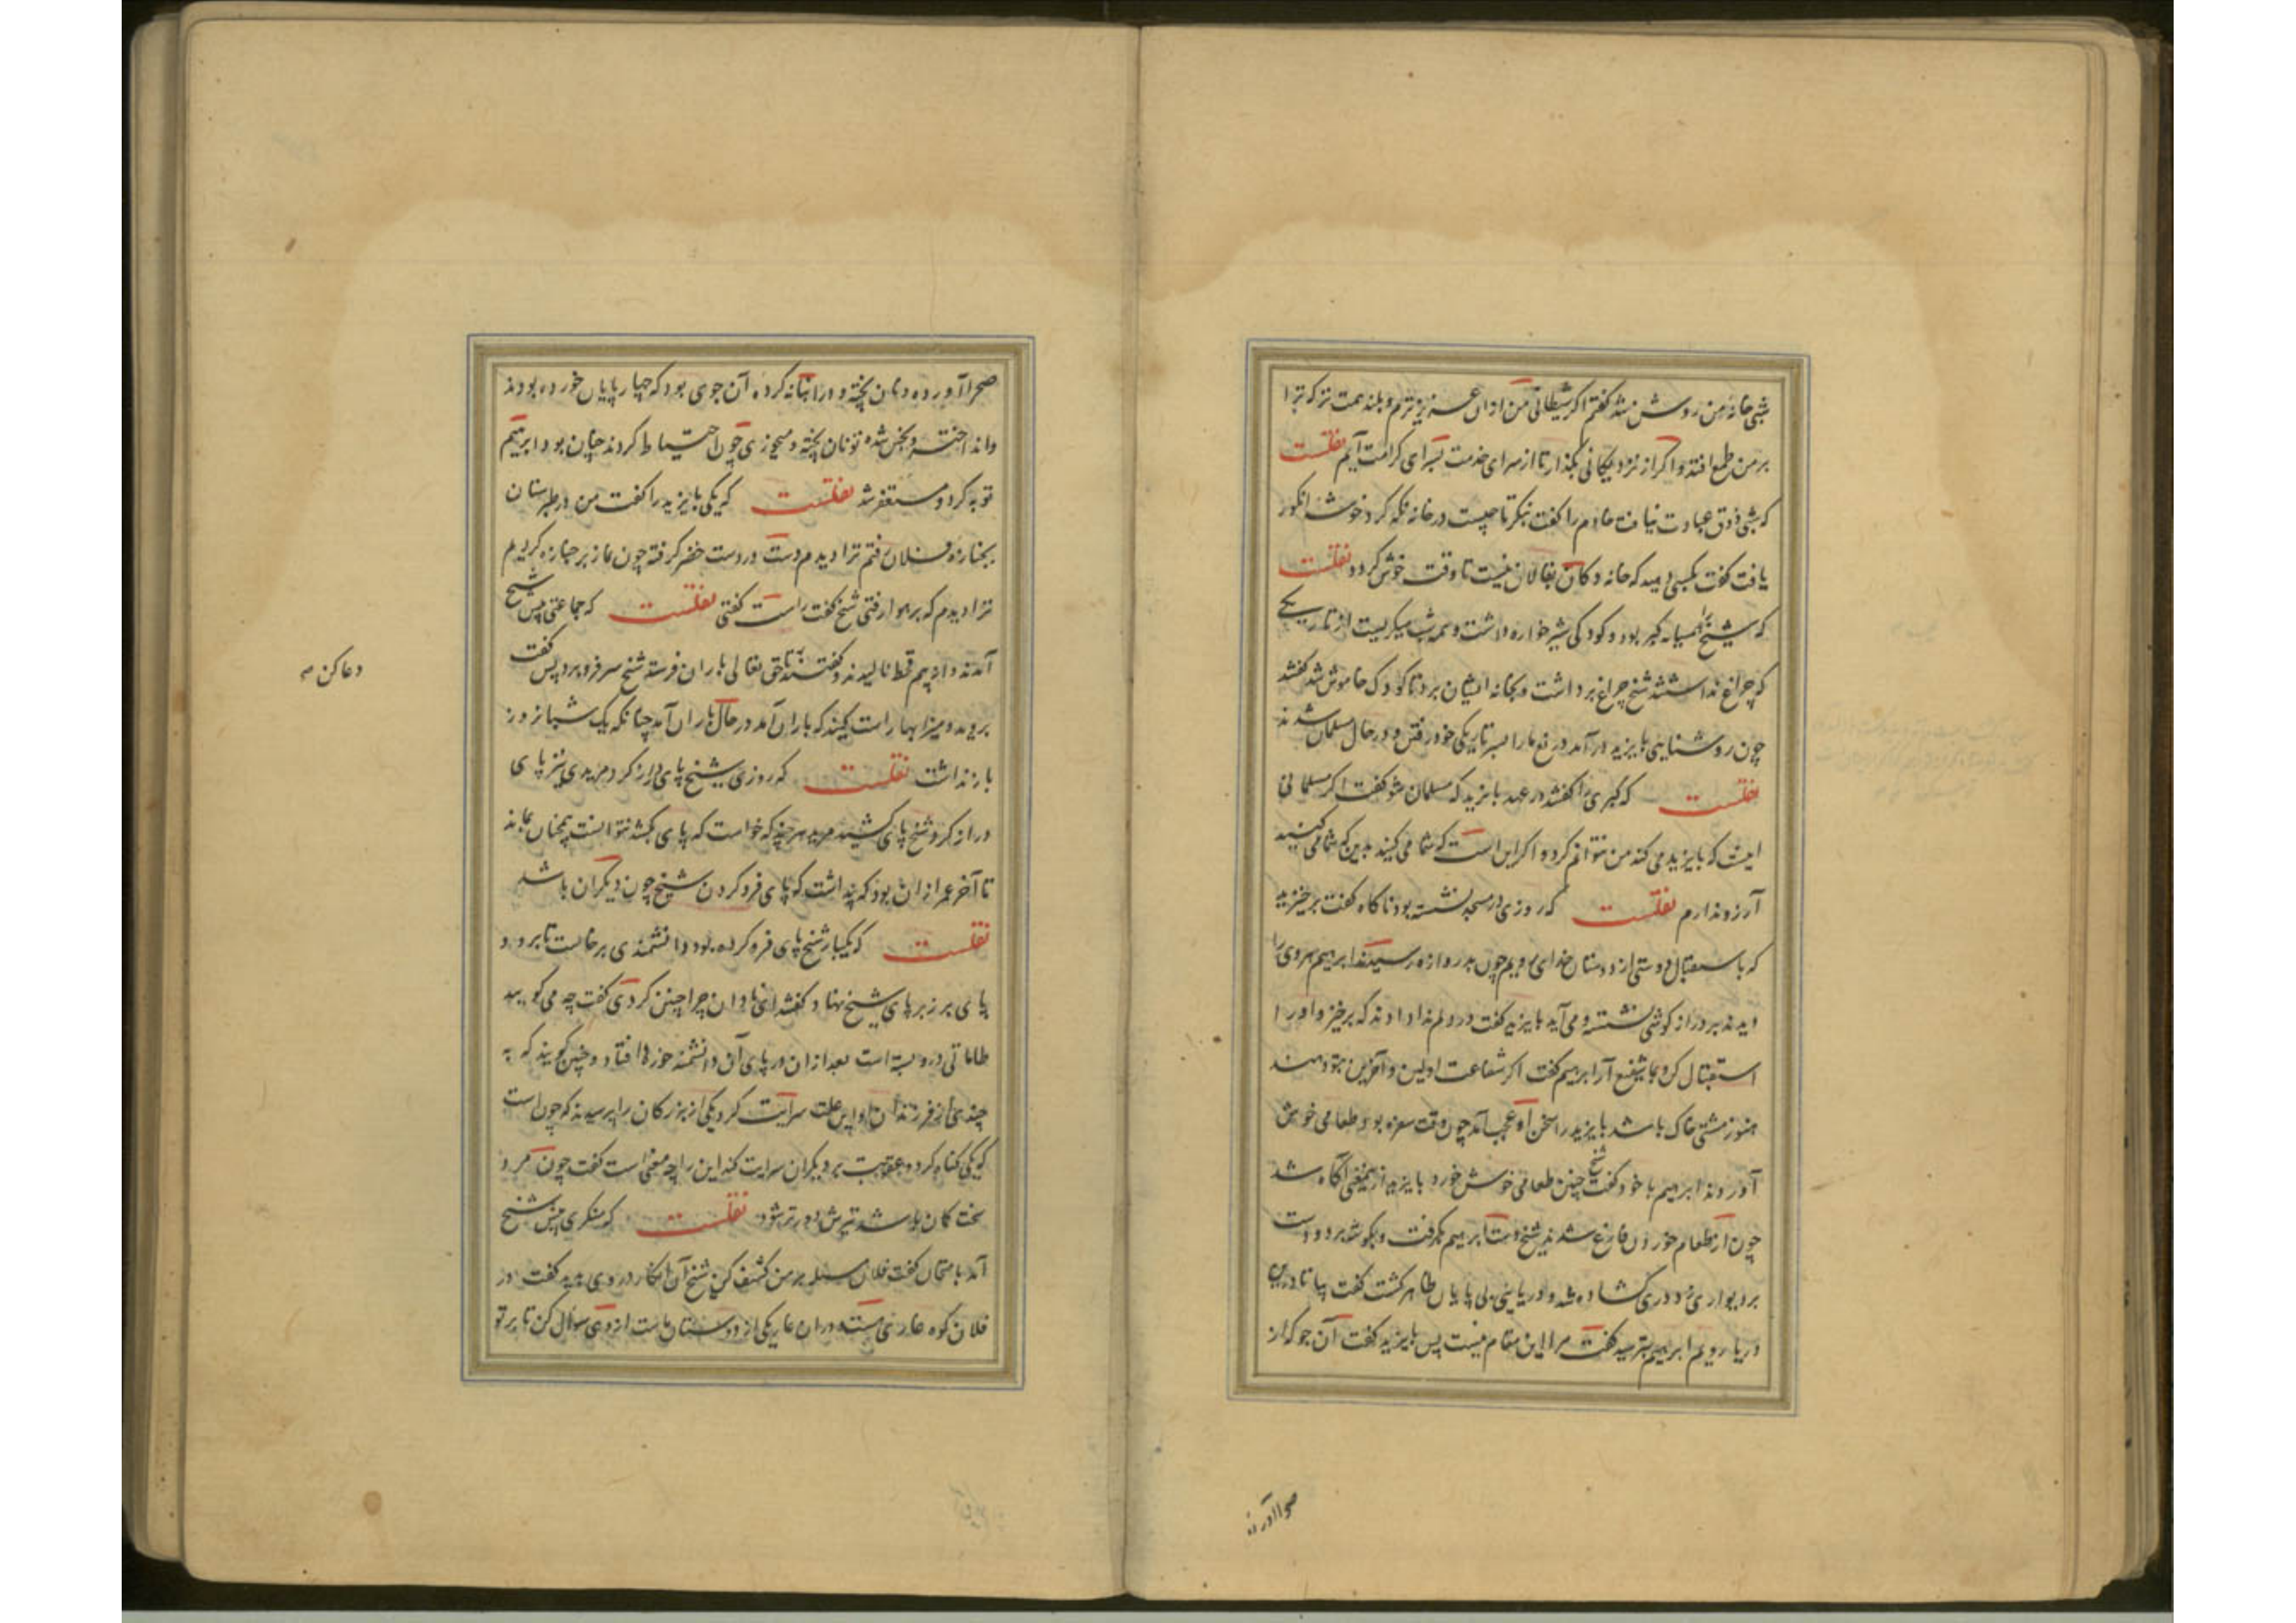 شبی خانه من روشن شد گفتم اکر شیطانی من ازان عزیزترم و بلند همت تر که ترا
بر من طمع افتد و اکر از نزدیکانی بگذار تا از سرای خدمت بسرای کرامت آیم نقلست
که شبی ذوق عبادت نیافت خادم را گفت بنکر تا چیست در خانه نکه کرد خوشه انکور
یافت گفت بکسی دهید که خانه ما دکان بقالان نیست تا وقت خوش کردد نقلست
که شیخ را همسایه کبر بود و کودکی شیر خواره داشت و همه شب میکریست از تاریکی
که چراغ نداشتند شیخ چراغ برداشت و بخانه ایشان برد تا کودک خاموش شد کفتند
چون روشنایی بایزید درآمد دریغ بود ما را بسر تاریکی خود رفتن و در حال مسلمان شدند
نقلست که کبری را کفتند در عهد بایزید که مسلمان شو کفت اکر مسلمانی
اینست که بایزید می کند من نتوانم کرد و اکر این است که شما می کنید بدین که شما می کنید
آرزو ندارم نقلست که روزی در مسجد نشسته بود ناکاه کفت برخیزید
که باستقبال دوستی از دوستان خدای رویم چون بدروازه رسیدند ابرهیم هروی را
دیدند بر دراز کوشی نشسته و می آید بایزید کفت در دلم ندا دادند که برخیز و او را
استقبال کن و بما شفیع آر ابرهیم کفت اکر شفاعت اولین و آخرین بتو دهند
هنوز مشتی خاک باشد بایزید را سخن او عجب آمد چون وقت سفره بود طعامی خوش
آوردند ابرهیم با خود کفت شیخ چنین طعامی خوش خورد بایزید ازین معنی آکاه شد
چون از طعام خوردن فارغ شدند شیخ دست ابرهیم بکرفت و بکوشه برد و دست
بر دیواری زد دری کشاده شد و دریایی بی پایان ظاهر کشت کفت بیا تا درین
دریا رویم ابرهیم بترسید کفت مرا این مقام نیست پس بایزید کفت آن جو که از
صحرا آورده
صحرا آورده و نان پخته و در انبانه کرده آن جوی بود که چهار پایان خورده بودند
و انداخته و نجس شده تو نان پخته و میخوری چون احتیاط کردند چنان بود ابرهیم
توبه کرد و مستغفر شد نقلست که یکی بایزید را کفت من در طبرستان
بجنازه فلان رفتم ترا دیدم دست در دست خضر کرفته چون نماز بر جنازه کردیم
ترا دیدم که بر هوا رفتی شیخ کفت راست کفتی نقلست که جماعتی پیش شیخ
آمدند و از بیم قحط نالیدند و کفتند تا حق تعالی باران فرستد شیخ سر فرو برد پس کفت
دعا کن
بروید و میزابها راست کنید که باران آمد در حال باران آمد چنانکه یک شبانروز
باز نداشت نقلست که روزی شیخ پای دراز کرد مریدی نیز پای
دراز کرد شیخ پای کشید مرید هر چند که خواست که پای کشد نتوانست همچنان بماند
تا آخر عمر از آن بود که پنداشت که پای فرو کردن شیخ چون دیکران باشد
نقلست که یکبار شیخ پای فرو کرده بود دانشمندی برخاست تا برود
پای بر زبر پای شیخ نهاد کفتند ای نادان چرا چنین کردی کفت چه می کویید
طاماتی درو بسته است بعد ازان در پای آن دانشمند خوره افتاد و چنین کویند که به
چندی از فرزندان او این علت سرایت کرد یکی از بزرکان را پرسیدند که چون است
که یکی کناه کرد و عقوبت بر دیکران سرایت کند این را چه معنی است کفت چون مرد
سخت کمان باشد تیرش دورتر شود نقلست که منکری پیش شیخ
آمد بامتحان کفت فلان مسئله بر من کشف کن شیخ آن انکار در وی بدید کفت در
فلان کوه غاری هست و دران غار یکی از دوستان ماست از وی سوال کن تا بر تو